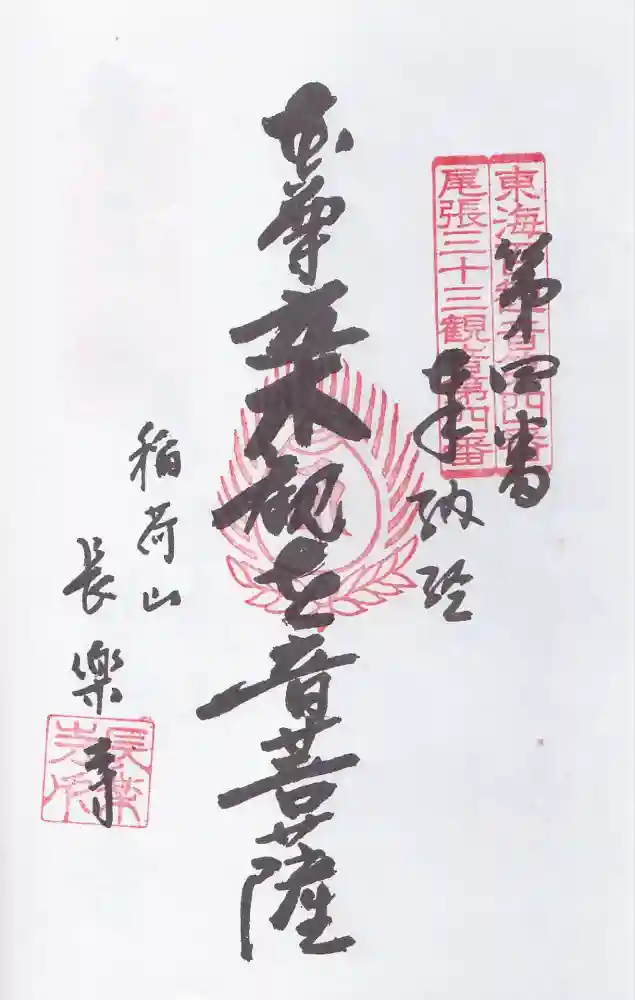 東海
尾張三十三観音第四番
第四番
奉納経
本尊
観世音菩薩
稲荷山
長樂寺